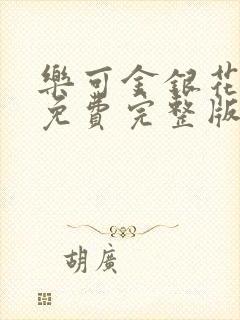 樂可金銀花
免費完整版
胡廣